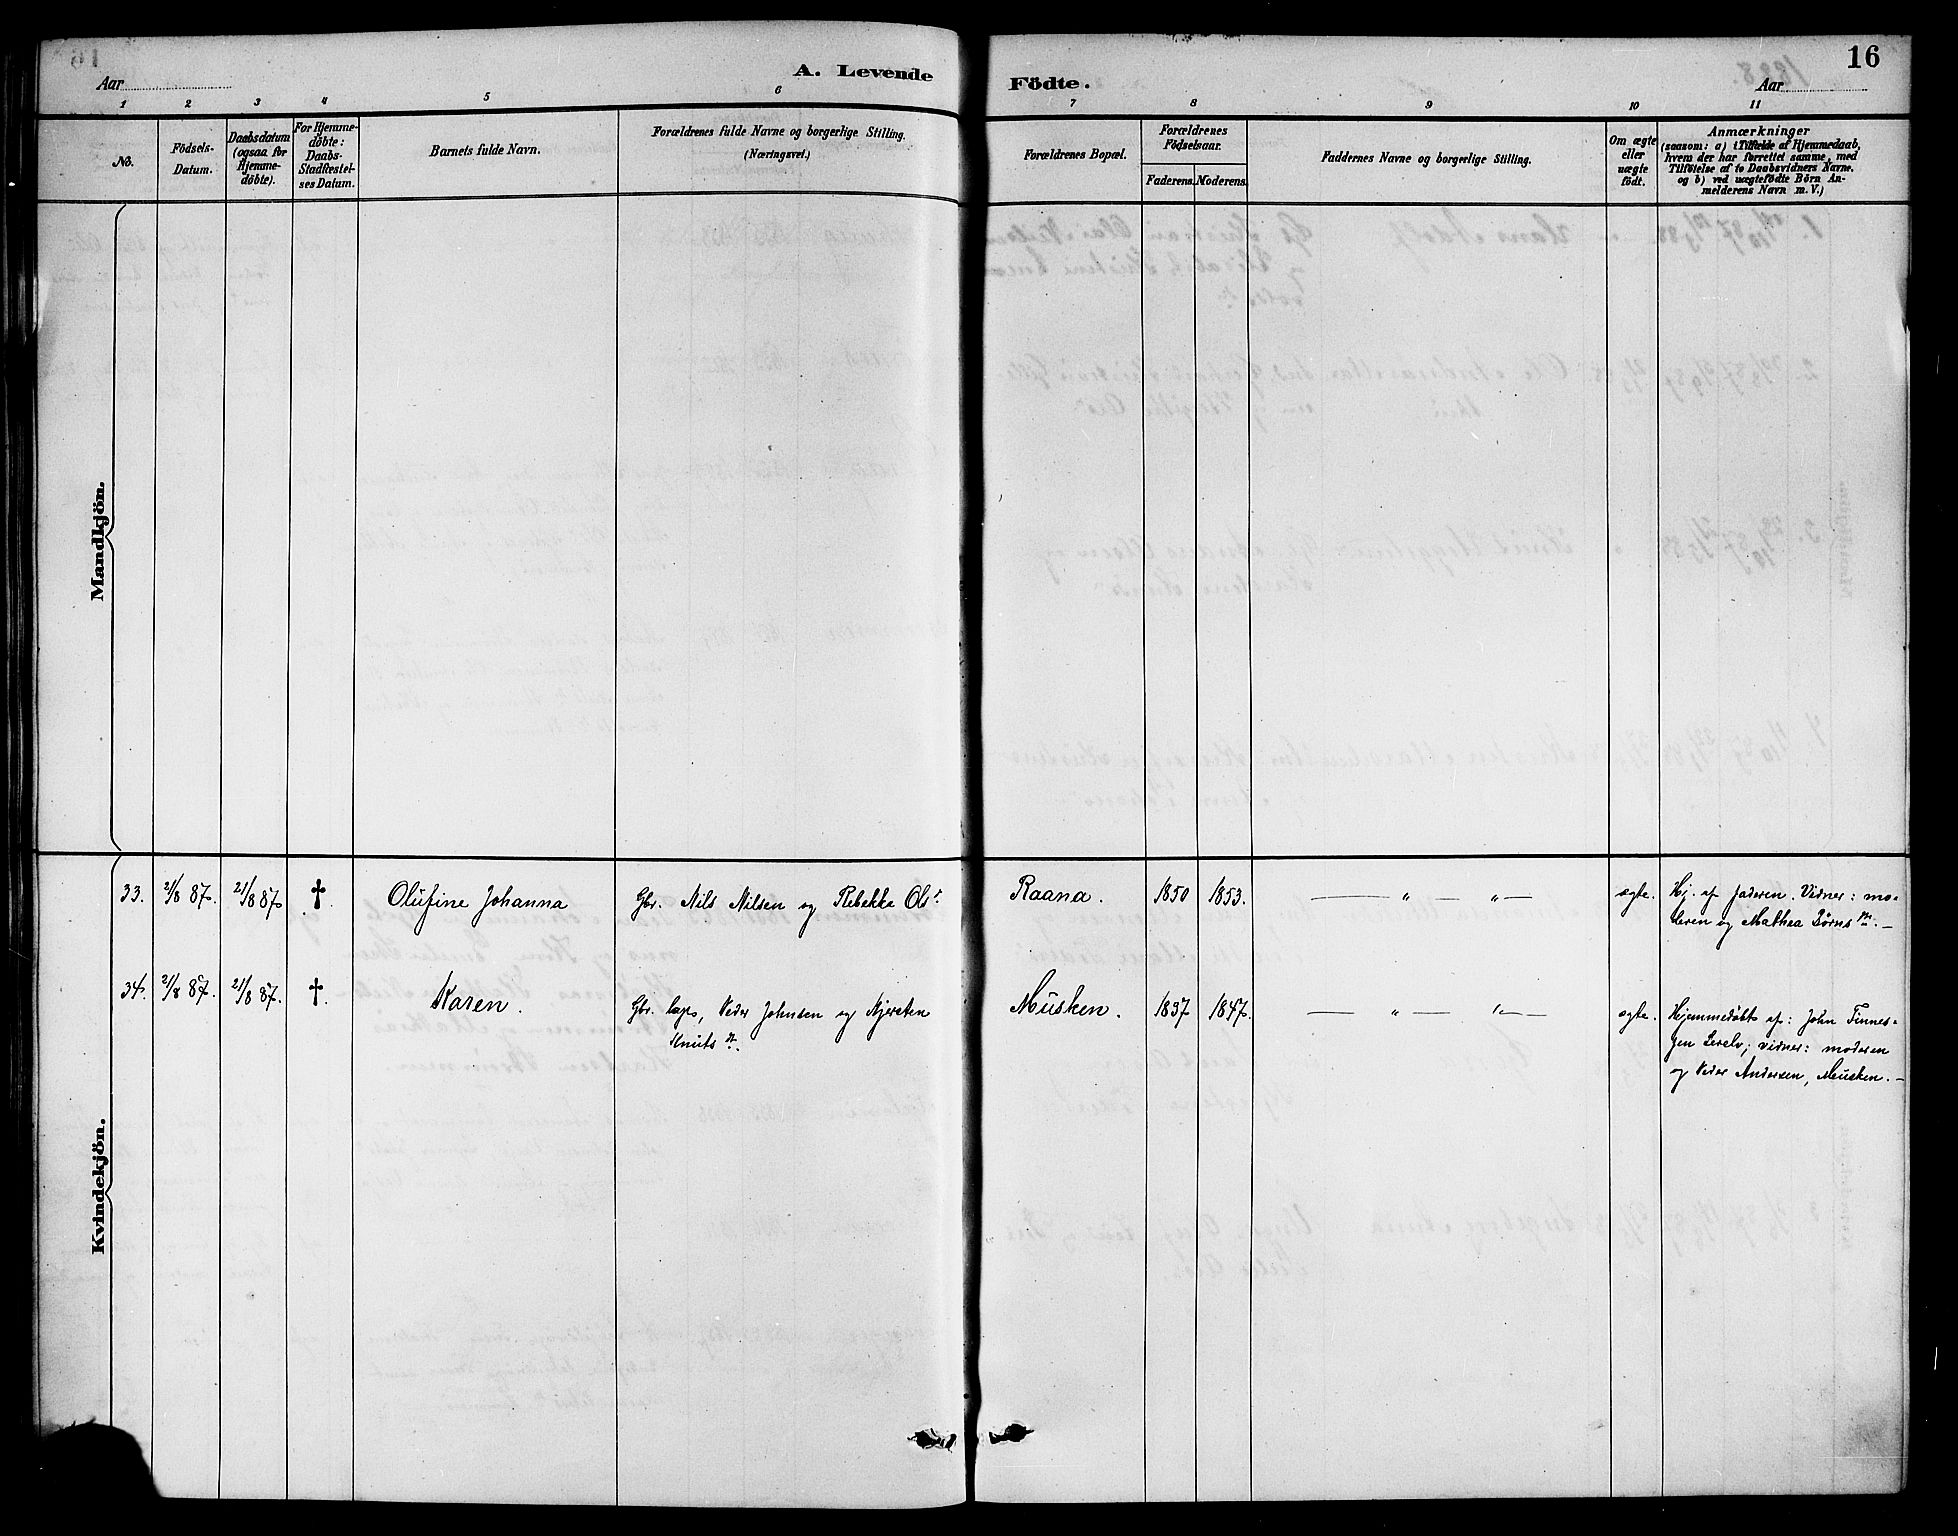 A. Levende Födte.
16
Aar
Aar
1 2 3 4 5 6 7 8 9 10 11
No.
Födsels-
Datum.
Daabsdatum
(ogsaa for
Hjemme-
döbte).
For Hjemme-
döbte:
Daabs-
Stadfæstel-
ses Datum.
Barnets fulde Navn.
Forældrenes fulde Navne og borgerlige Stilling.
(Næringsvei.)
Forældrenes Bopæl.
Forældrenes
Födselsaar.
Faderens. Moderens.
Faddernes Navne og borgerlige Stilling.
Om ægte
eller
uægte
födt.
Anmærkninger
(saasom: a) i Tilfælde af Hjemmedaab,
hvem der har forrettet samme, med
Tilföielse af to Daabsvidners Navne.
og b) ved uægtefödte Börn An-
melderens Navn m. V.)
Mandkjön.
Kvindekjön.
33. 2/8 87. 21/8 87 † Olufine Johanna Gbr. Nils Nilsen og Rebekke Ols d. Raana. 1850 1853. — " — "— ægte. Hj. af faderen. Vidner: mo-
deren og Mathea Børns dr. —
34. 2/8 87. 21/8 87. †. Karen. Gbr. lap, Peder Johnsen og Kjersten Musken. 1837 1847. — " — "— ægte. Hjemmedøbt af: John Finnes-
Knuts dr.
og Peder Andersen, Musken. —